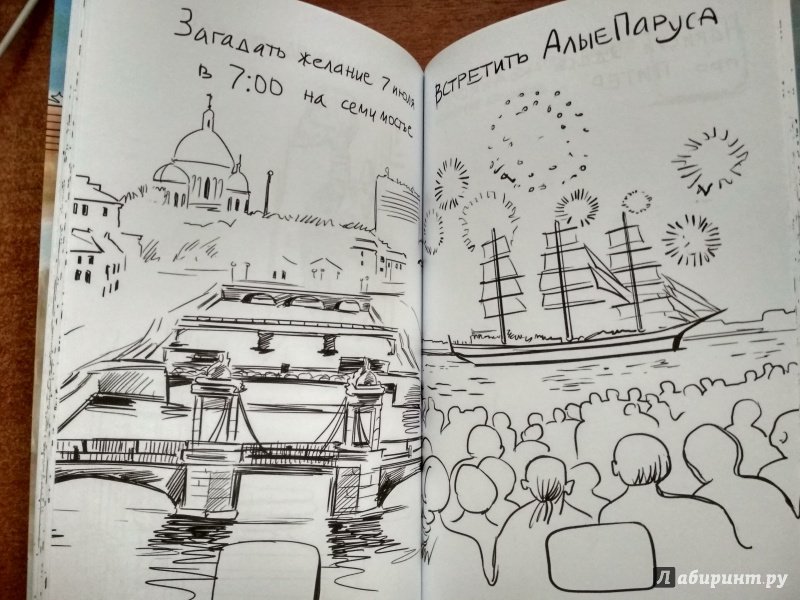 Загадать желание 7 июля
в 7:00 на семимостье
встретить Алые Паруса
Лабиринт.ру